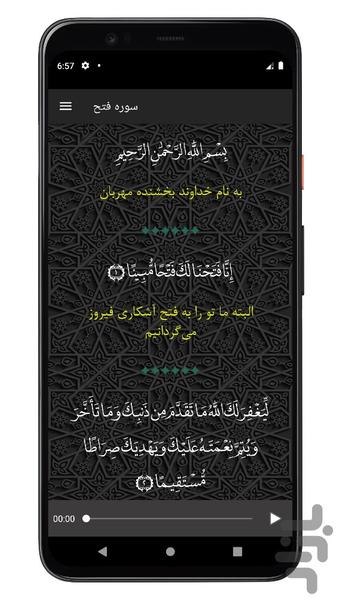 6:57
سوره فتح
بِسْمِ اللَّهِ الرَّحْمَٰنِ الرَّحِيمِ
به نام خداوند بخشنده مهربان
إِنَّا فَتَحْنَا لَكَ فَتْحًا مُّبِينًا ﴿١﴾
البته ما تو را به فتح آشکاری فیروز
می‌گردانیم
لِّيَغْفِرَ لَكَ اللَّهُ مَا تَقَدَّمَ مِن ذَنبِكَ وَمَا تَأَخَّرَ
وَيُتِمَّ نِعْمَتَهُ عَلَيْكَ وَيَهْدِيَكَ صِرَاطًا
مُّسْتَقِيمًا ﴿٢﴾
00:00
بازار